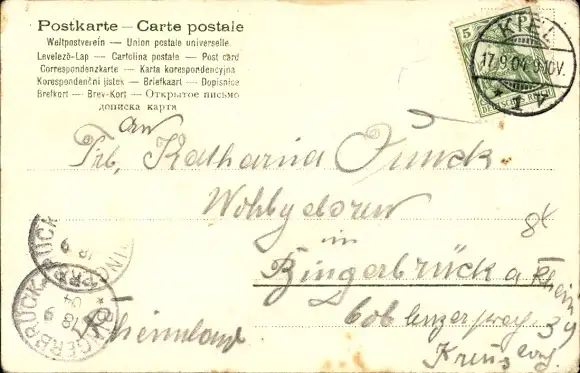 Postkarte – Carte postale
Weltpostverein — Union postale universelle
Levelező-Lap — Cartolina postale — Post card
Correspondenzkarte — Karta korespondencyjna
Korespondenční lístek — Briefkaart — Dopisnice
Brefkort — Brev-Kort — Открытое письмо
дописка карта
5
DEUTSCHES REICH
17.9.04 9-10V.
An
Frl. Katharina Funck
Wohlgeboren
in
Bingerbrück a Rhein
Coblenzerweg 39
Kreuz
Rheinland
BINGERBRÜCK
18 9
04
BINGERBRÜCK
18 9